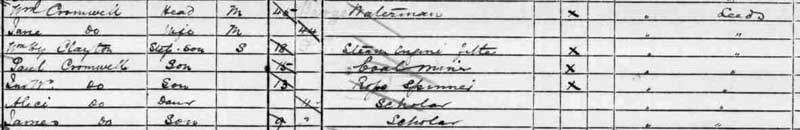 Wm Cromwell Head M Waterman x " Leeds
Jane Do Wife M 44 " "
Wm Hy Clayton Step-Son S 18 Steam Engine fitter x " "
Paul Cromwell Son 15 Coal Miner x " "
Jas Wm Do Son 13 Rope Spinner x " "
Alice Do Daur 11 Scholar " "
James Do Son 9 Scholar " "